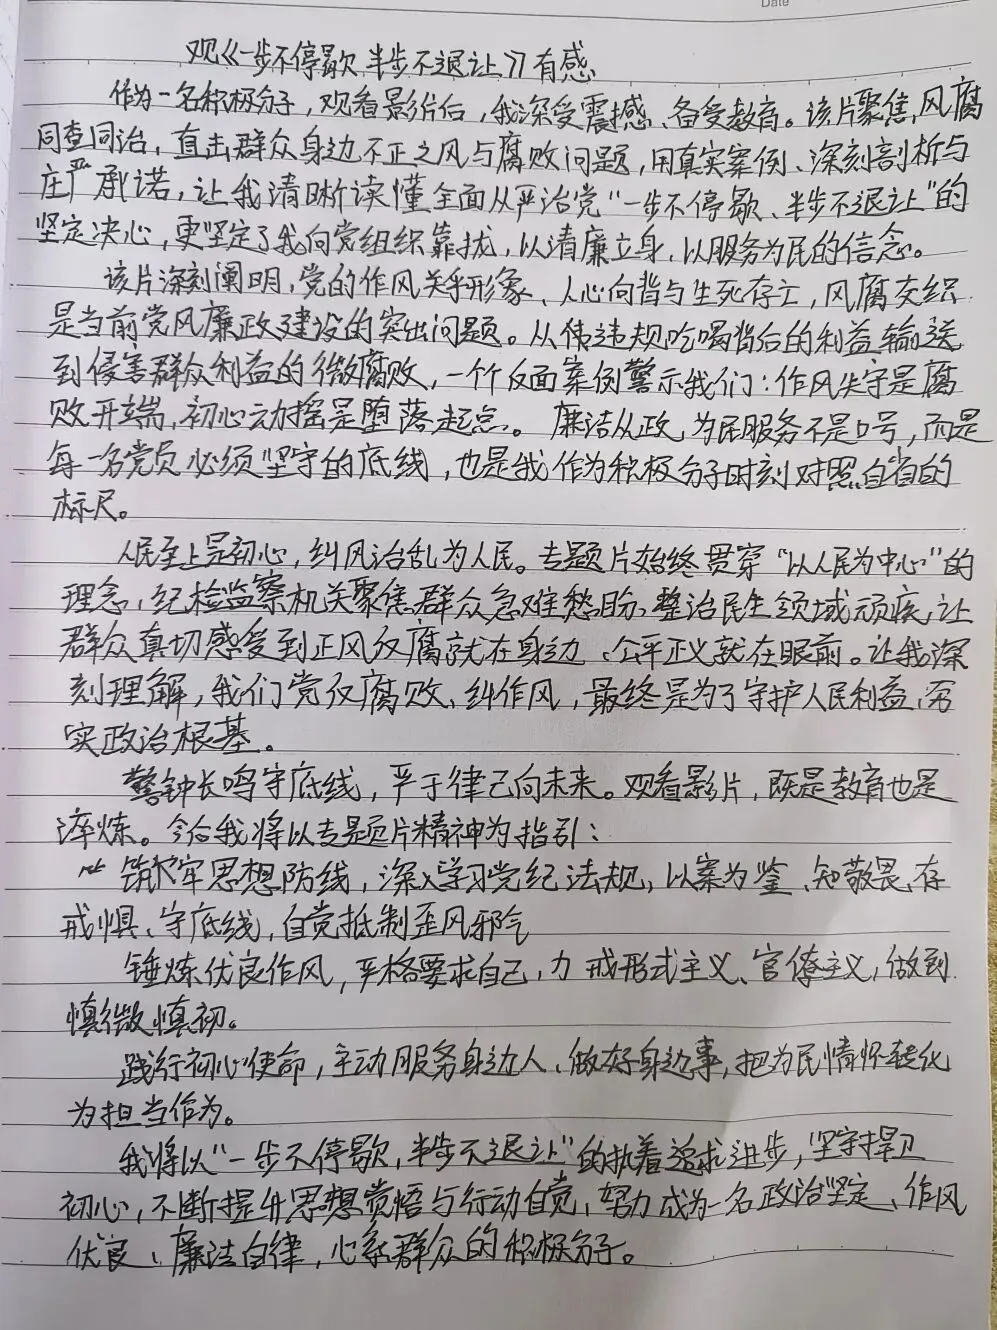 Date
观《一步不停歇 半步不退让》有感
作为一名积极分子，观看影片后，我深受震撼、备受教育。该片聚焦风腐
同查同治，直击群众身边不正之风与腐败问题，用真实案例、深刻剖析与
庄严承诺，让我清晰读懂全面从严治党“一步不停歇、半步不退让”的
坚定决心，更坚定了我向党组织靠拢，以清廉立身，以服务为民的信念。
该片深刻阐明，党的作风关乎形象、人心向背与生死存亡，风腐交织
是当前党风廉政建设的突出问题。从违规吃喝背后的利益输送
到侵害群众利益的微腐败，一个个反面案例警示我们：作风失守是腐
败开端，初心动摇是堕落起点。廉洁从政，为民服务不是口号，而是
每一名党员必须坚守的底线，也是我作为积极分子时刻对照自省的
标尺。
人民至上是初心，纠风治乱为人民。专题片始终贯穿“以人民为中心”的
理念，纪检监察机关聚焦群众急难愁盼，整治民生领域顽疾，让
群众真切感受到正风反腐就在身边、公平正义就在眼前。让我深
刻理解，我们党反腐败、纠作风，最终是为了守护人民利益，夯
实政治根基。
警钟长鸣守底线，严于律己向未来。观看影片，既是教育也是
淬炼。今后我将以专题片精神为指引：
筑牢思想防线，深入学习党纪法规，以案为鉴、知敬畏、存
戒惧、守底线，自觉抵制歪风邪气
锤炼优良作风，严格要求自己，力戒形式主义、官僚主义，做到
慎微慎初。
践行初心使命，主动服务身边人、做好身边事，把为民情怀转化
为担当作为。
我将以“一步不停歇，半步不退让”的执着追求进步，坚守捍卫
初心，不断提升思想觉悟与行动自觉，努力成为一名政治坚定、作风
优良、廉洁自律，心系群众的积极分子。